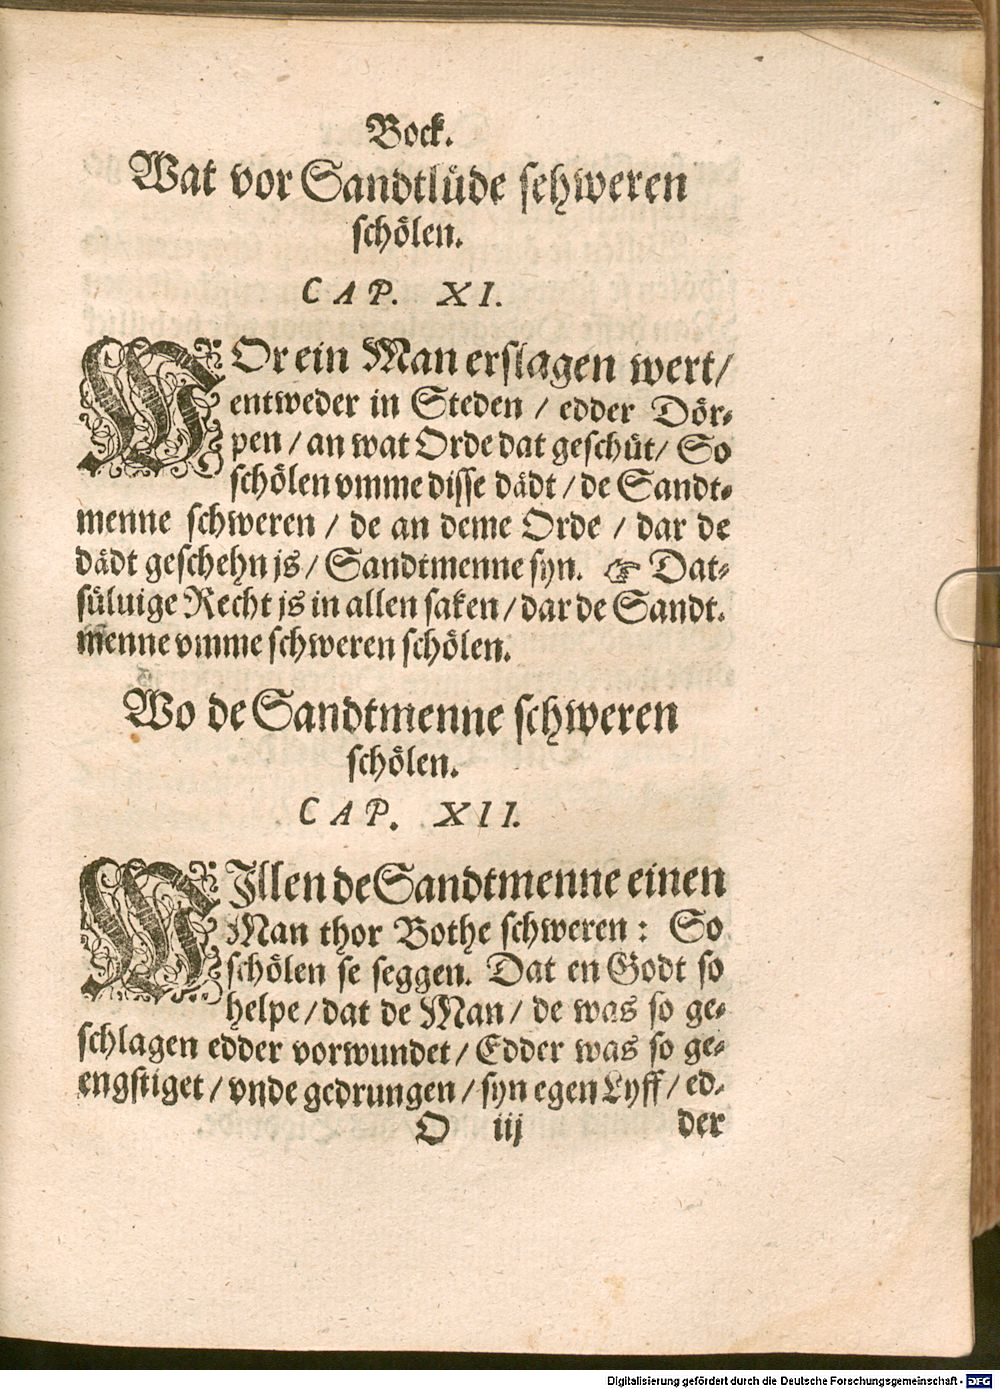 Bock.
Wat vor Sandtlüde sehweren
schölen.
CAP. XI.
WOr ein Man erslagen wert/
entweder in Steden / edder Dör⸗
pen / an wat Orde dat geschüt/ So
schölen vmme disse dådt / de Sandt⸗
menne schweren / de an deme Orde / dar de
dådt geschehn js / Sandtmenne syn. ☞ Dat⸗
süluige Recht js in allen saken / dar de Sandt⸗
menne vmme schweren schölen.
Wo de Sandtmenne schweren
schölen.
CAP. XII.
WJllen de Sandtmenne einen
Man thor Bothe schweren : So
schölen se seggen. Dat en Godt so
helpe / dat de Man / de was so ge⸗
schlagen edder vorwundet / Edder was so ge⸗
engstiget / vnde gedrungen / syn egen Lyff / ed⸗
O iij der
Digitalisierung gefördert durch die Deutsche Forschungsgemeinschaft - DFG